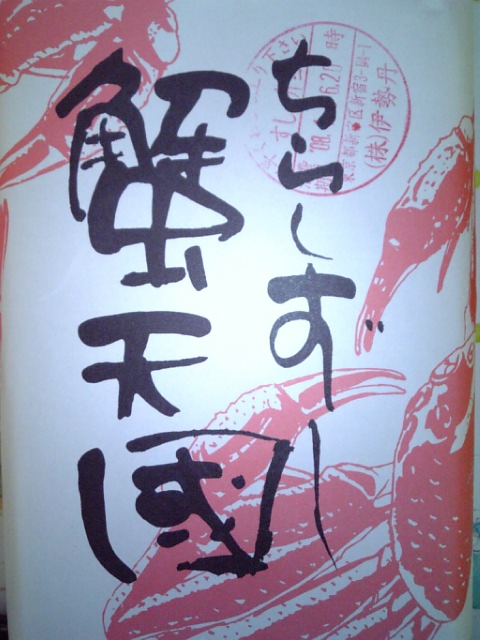 ちらしずし
蟹天国
08. 6.2
時
東京都新 区新宿3-14-1
(株)伊勢丹